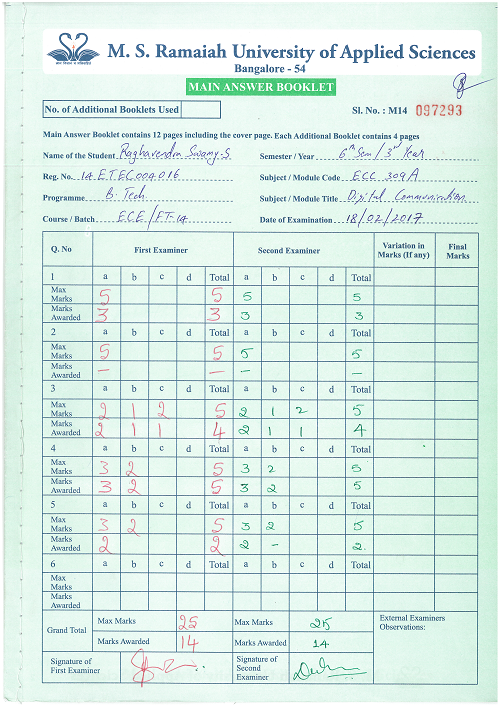 M. S. Ramaiah University of Applied Sciences
Bangalore - 54
MAIN ANSWER BOOKLET
No. of Additional Booklets Used
Sl. No. : M14 097293
Main Answer Booklet contains 12 pages including the cover page. Each Additional Booklet contains 4 pages
Name of the Student Raghavendra Swamy-S Semester / Year 6th Sem / 3rd Year
Reg. No. 14ETEC004016 Subject / Module Code ECC 309A
Programme B. Tech Subject / Module Title Digital Communication
Course / Batch ECE/FT-14 Date of Examination 18/02/2017
Q. No First Examiner Second Examiner Variation in Marks (If any) Final Marks
1 a b c d Total a b c d Total
Max Marks 5 5 5 5
Marks Awarded 3 3 3 3
2 a b c d Total a b c d Total
Max Marks 5 5 5 5
Marks Awarded — — — —
3 a b c d Total a b c d Total
Max Marks 2 1 2 5 2 1 2 5
Marks Awarded 2 1 1 4 2 1 1 4
4 a b c d Total a b c d Total
Max Marks 3 2 5 3 2 5
Marks Awarded 3 2 5 3 2 5
5 a b c d Total a b c d Total
Max Marks 3 2 5 3 2 5
Marks Awarded 2 2 2 - 2
6 a b c d Total a b c d Total
Max Marks
Marks Awarded
Grand Total Max Marks 25 Max Marks 25 External Examiners Observations:
Marks Awarded 14 Marks Awarded 14
Signature of First Examiner Signature of Second Examiner